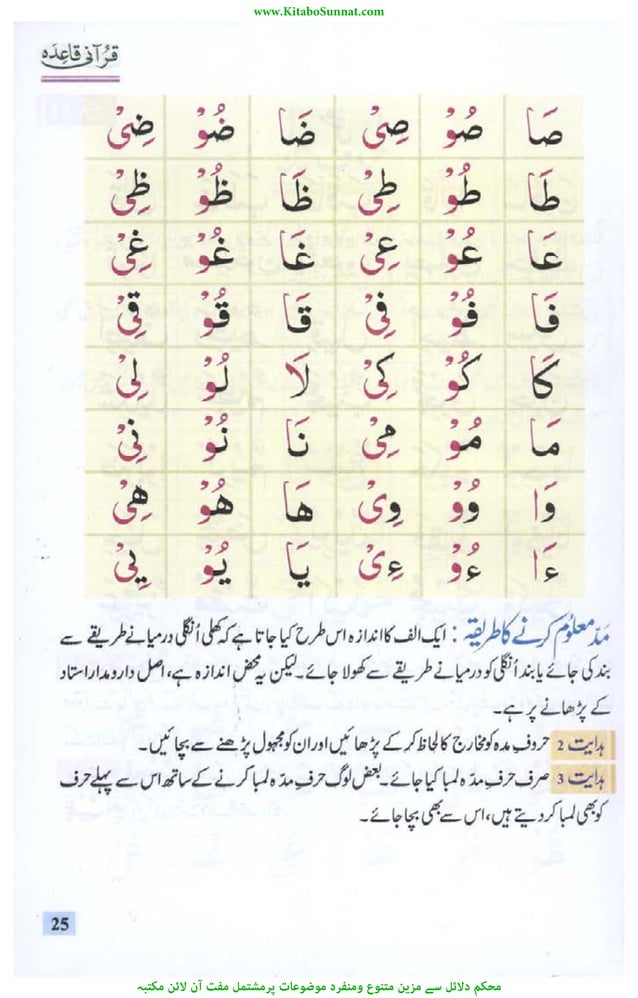 www.KitaboSunnat.com
قرآنی قاعدہ
صَا صُوْ صِیْ ضَا ضُوْ ضِیْ
طَا طُوْ طِیْ ظَا ظُوْ ظِیْ
عَا عُوْ عِیْ غَا غُوْ غِیْ
فَا فُوْ فِیْ قَا قُوْ قِیْ
كَا كُوْ كِیْ لَا لُوْ لِیْ
مَا مُوْ مِیْ نَا نُوْ نِیْ
وَا وُوْ وِیْ هَا هُوْ هِیْ
ءَا ءُوْ ءِیْ یَا یُوْ یِیْ
مَدّ معلوم کرنے کا طریقہ : ایک الف کا اندازہ اس طرح کیا جاتا ہے کہ کھلی اُنگلی درمیانے طریقے سے
بند کی جائے یا بند اُنگلی کو درمیانے طریقے سے کھولا جائے۔ لیکن یہ محض اندازہ ہے، اصل دارومدار استاد
کے پڑھانے پر ہے۔
ہدایت 2 حروفِ مدہ کو مخارج کا لحاظ کر کے پڑھائیں اور ان کو مجہول پڑھنے سے بچائیں۔
ہدایت 3 صرف حرفِ مدّہ لمبا کیا جائے۔ بعض لوگ حرفِ مدّہ لمبا کرنے کے ساتھ اس سے پہلے حرف
کو بھی لمبا کر دیتے ہیں، اس سے بھی بچا جائے۔
25
محکم دلائل سے مزین متنوع ومنفرد موضوعات پرمشتمل مفت آن لائن مکتبہ